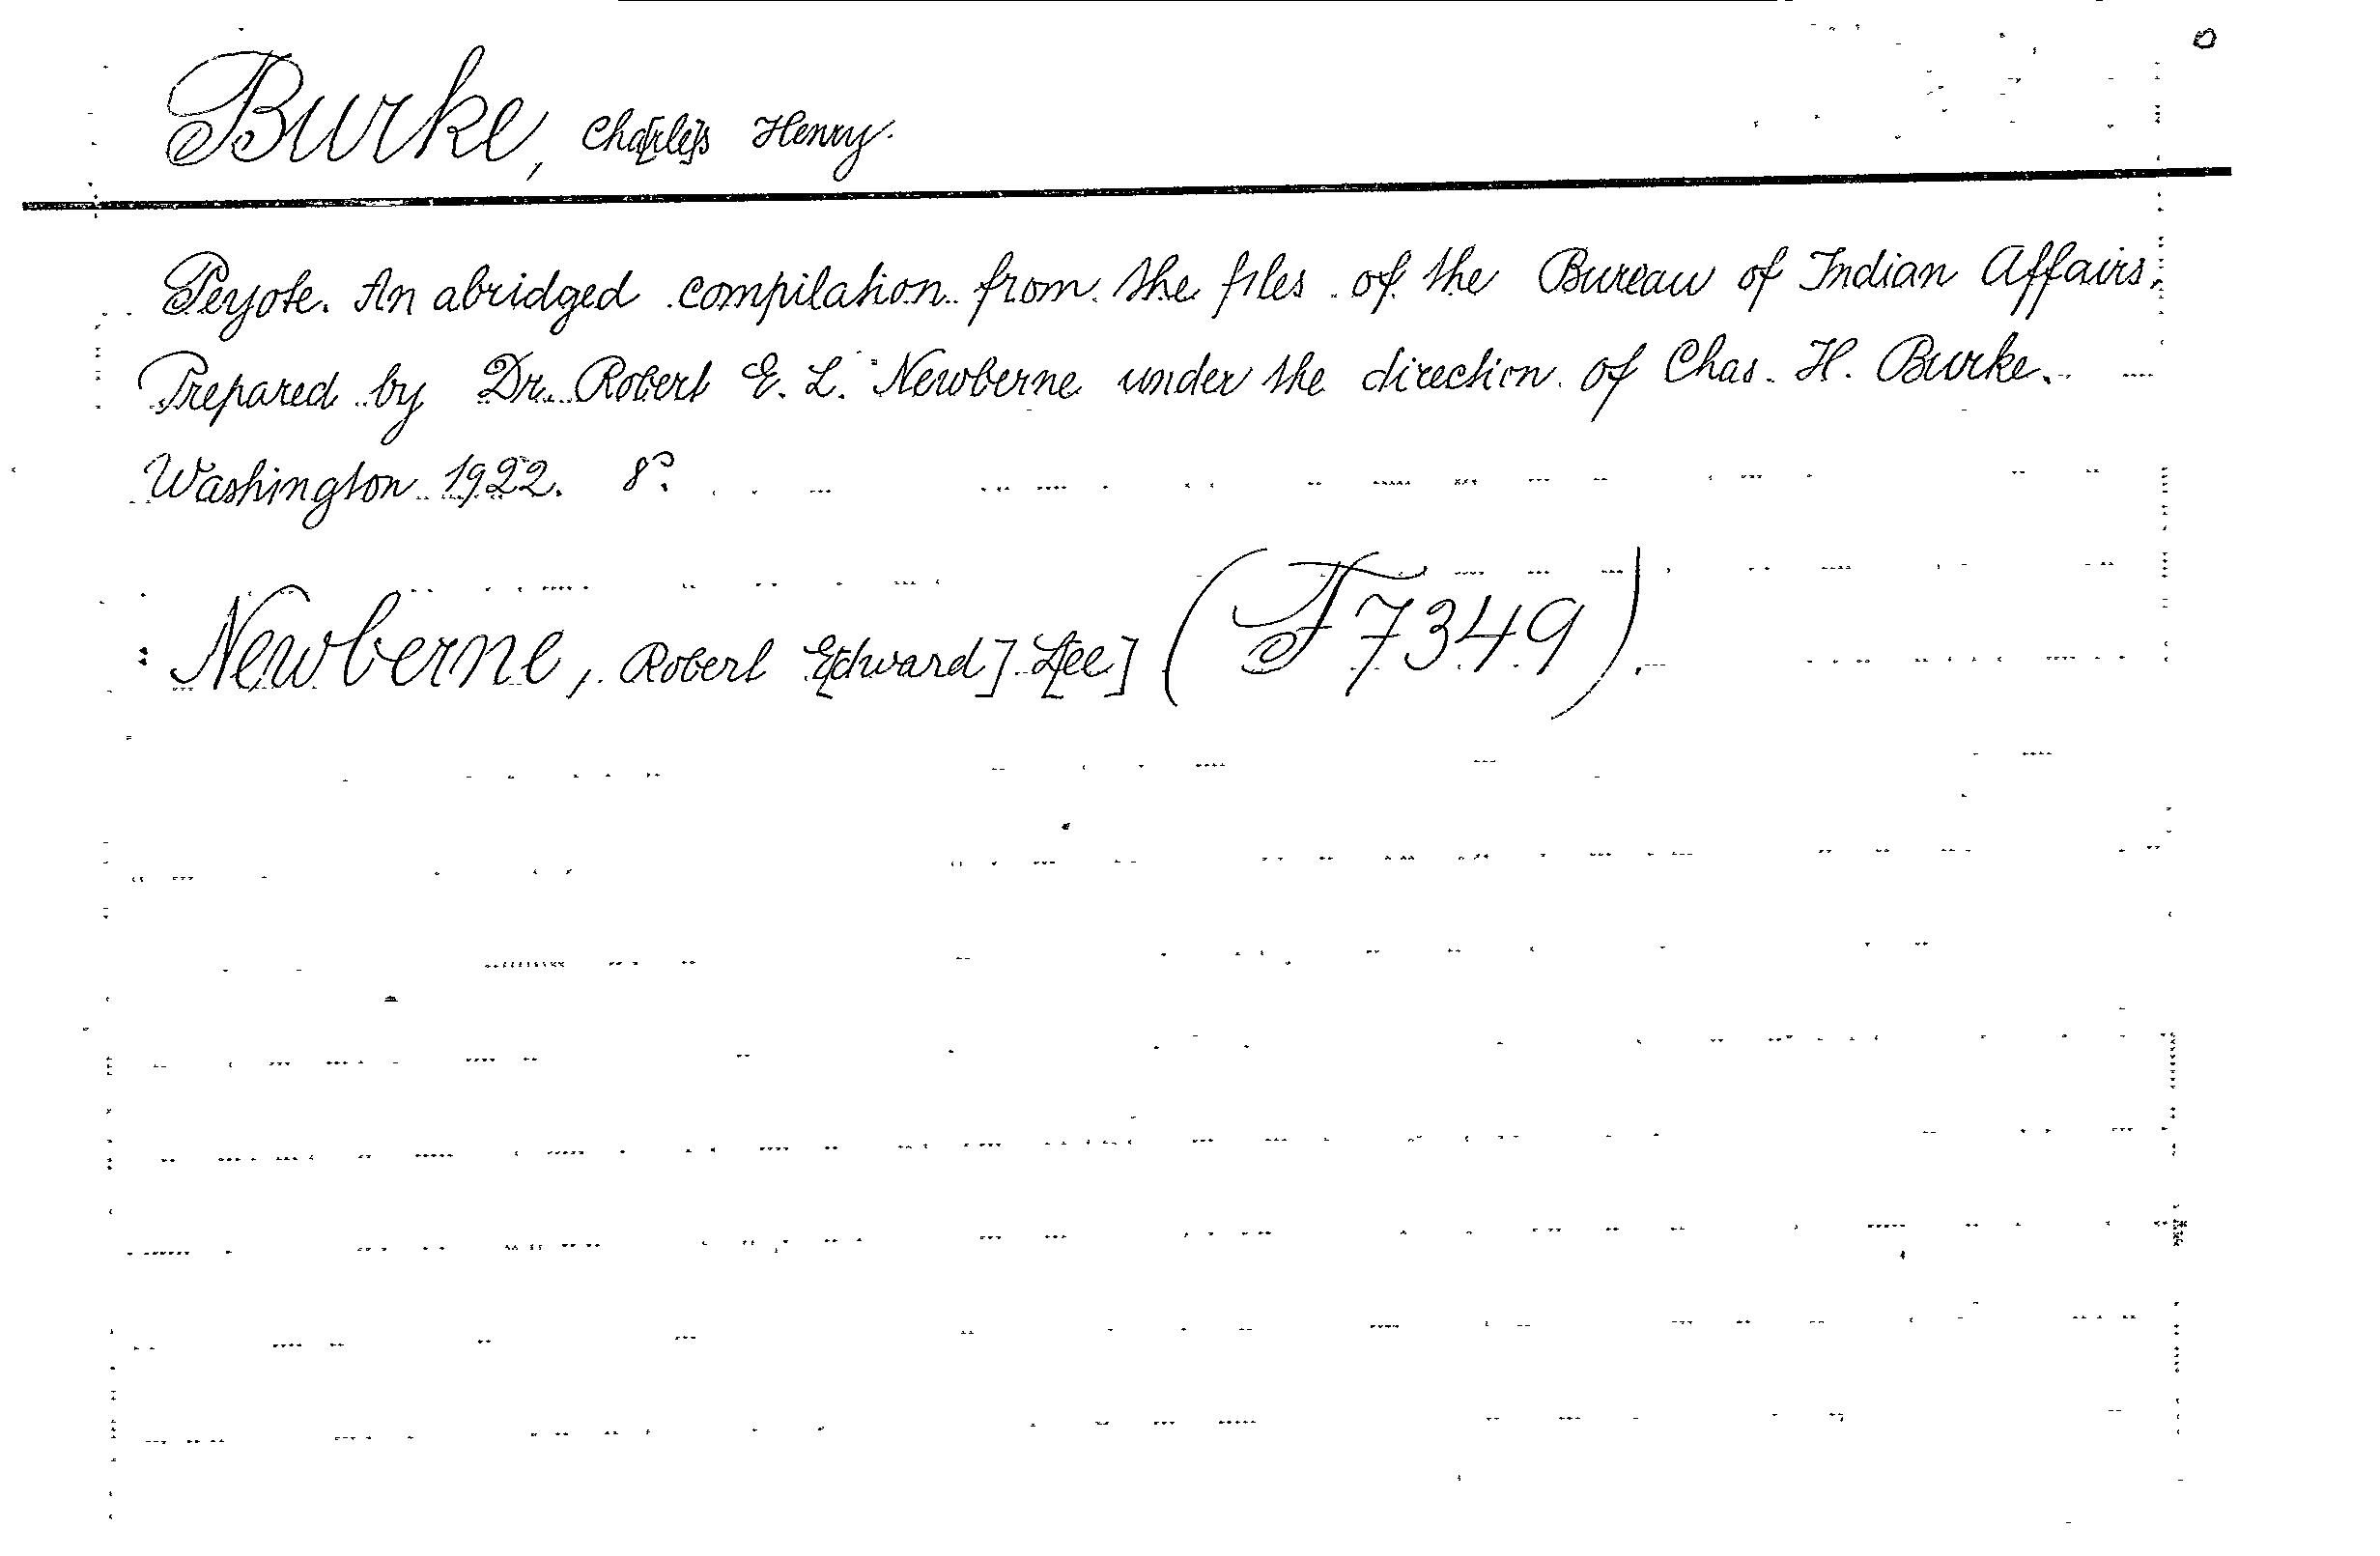 Burke, Cha[rle]s Henry.
Peyote. An abridged compilation from the files of the Bureau of Indian Affairs.
Prepared by Dr. Robert E. L. Newberne under the direction of Chas. H. Burke.
Washington 1922. 8°.
Newberne, Robert E[dward] L[ee] (F7349).